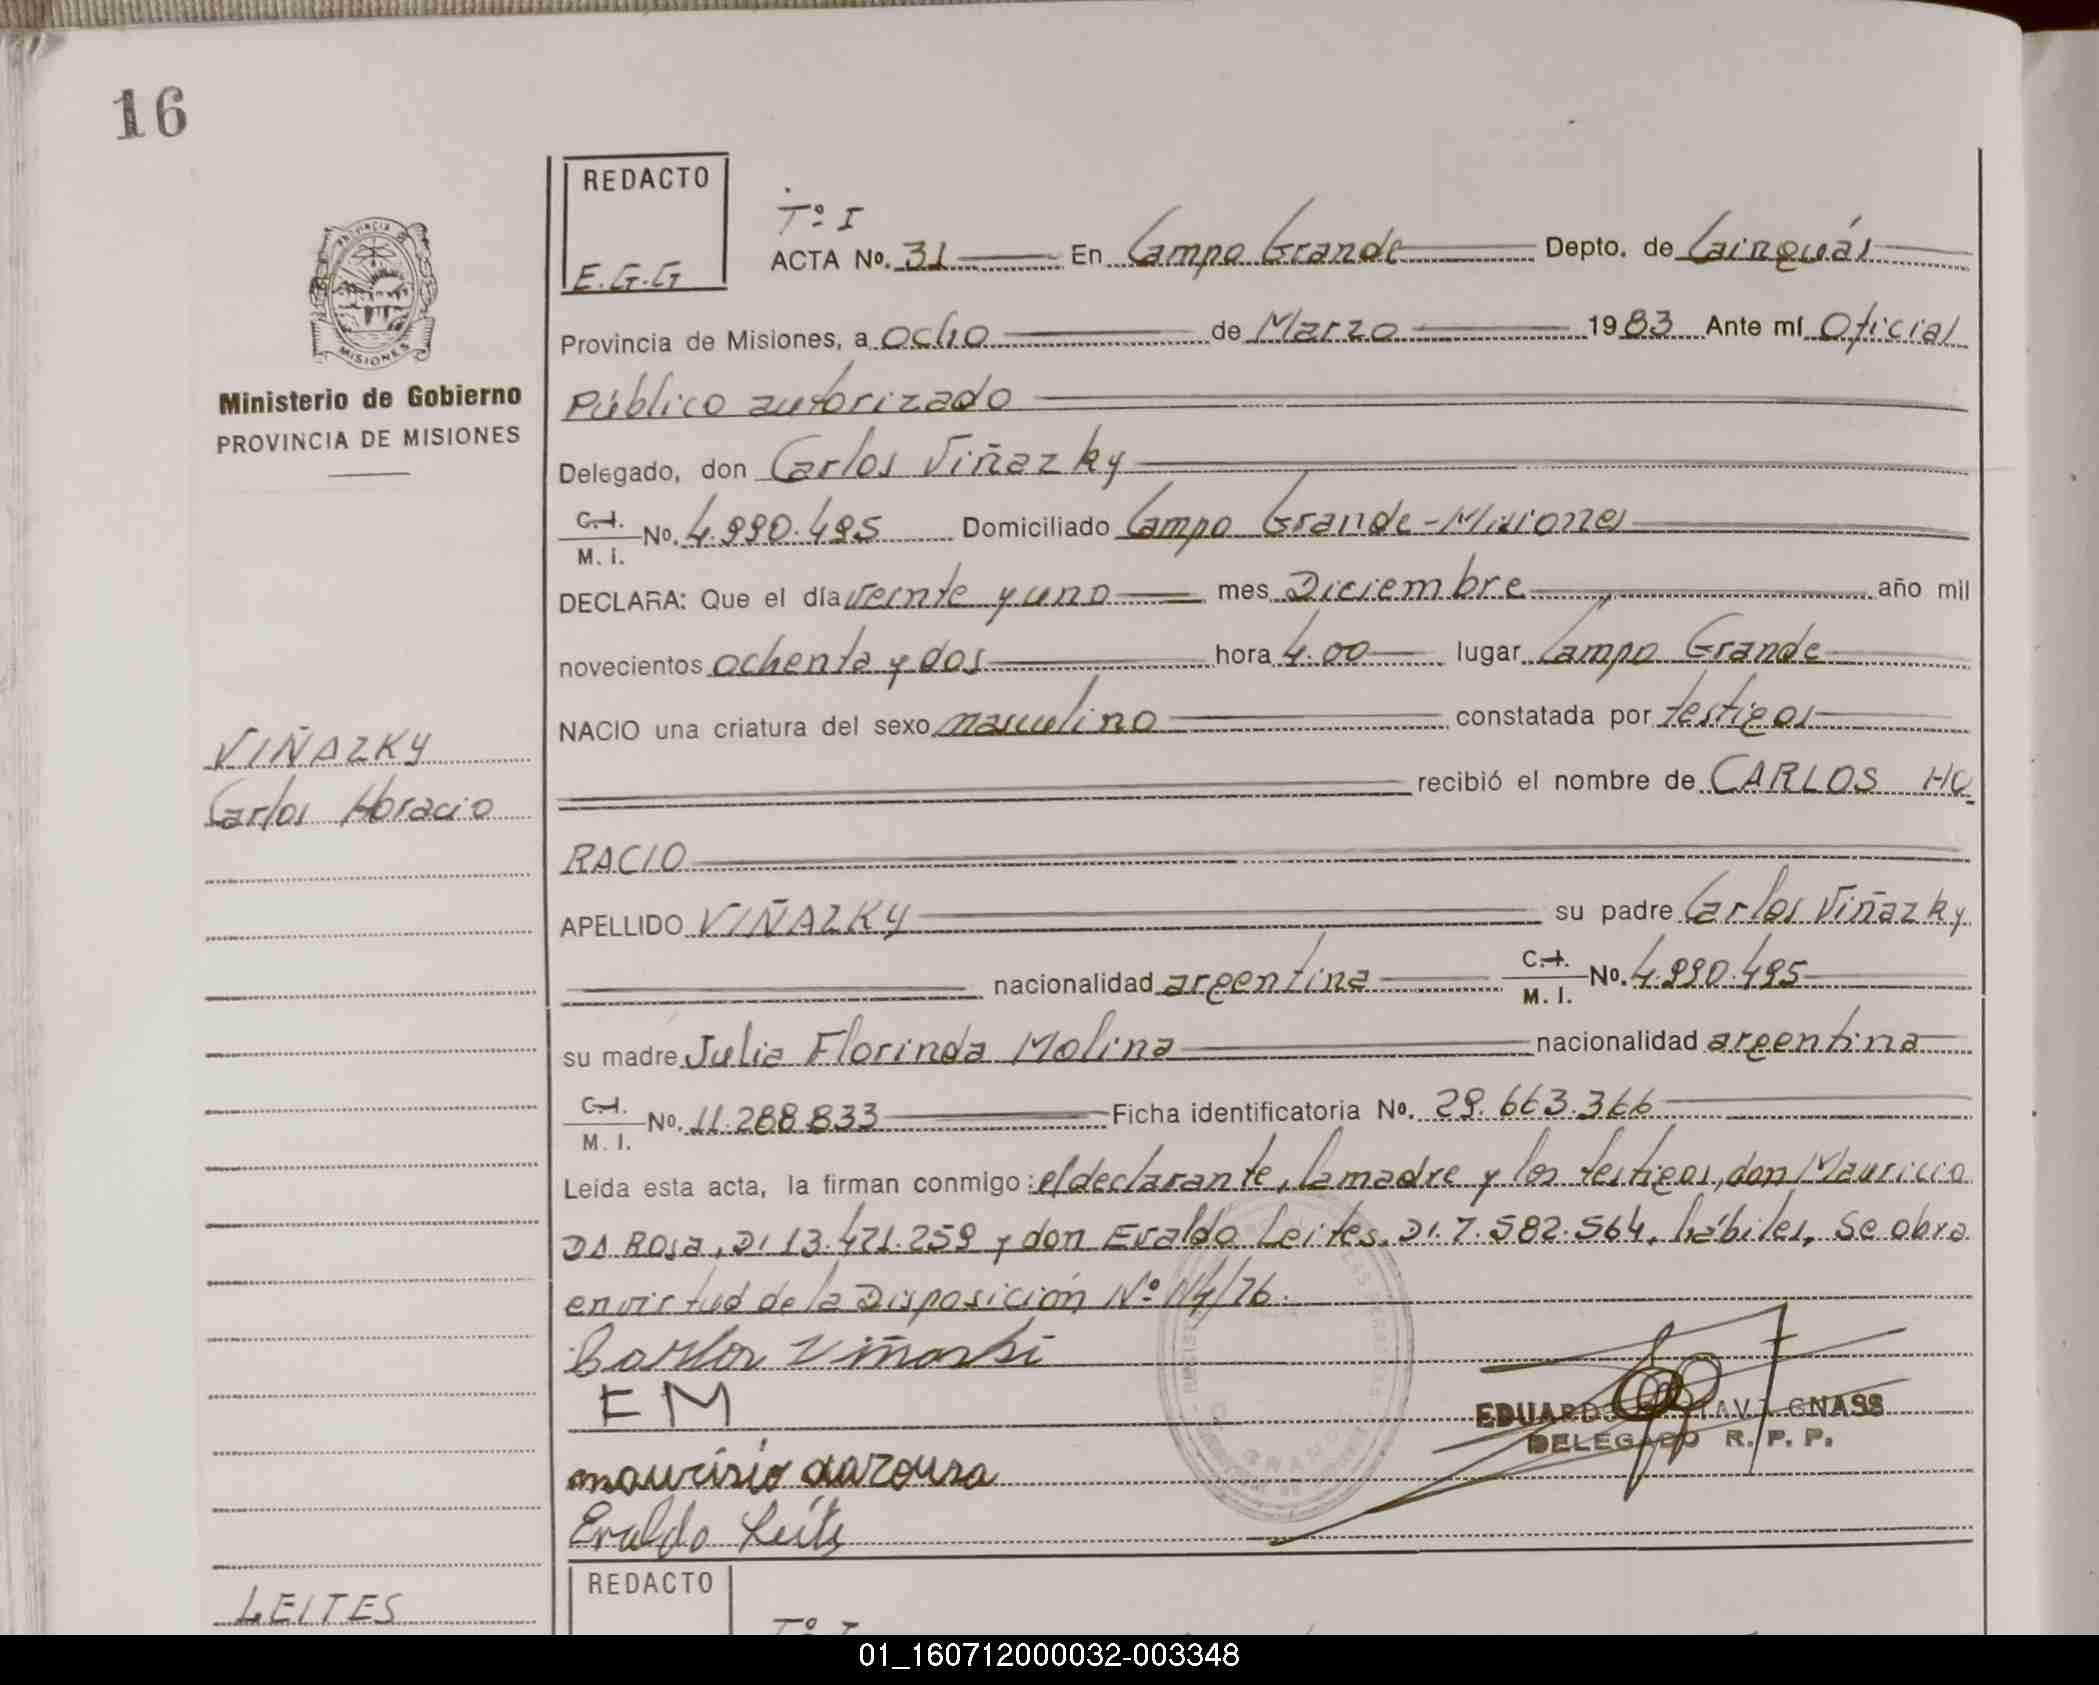 16
REDACTO
E.G.G
Tº I
ACTA Nº. 31 En Campo Grande Depto. de Cainguás
Provincia de Misiones, a ocho de Marzo 1983 Ante mí Oficial
Público autorizado
Delegado, don Carlos Viñazky
C.I. M.I. Nº. 4.990.495 Domiciliado Campo Grande-Misiones
DECLARA: Que el día veinte y uno mes Diciembre año mil
novecientos ochenta y dos hora 4.00 lugar Campo Grande
NACIO una criatura del sexo masculino constatada por testigos
recibió el nombre de CARLOS HO
RACIO
APELLIDO VIÑAZKY su padre Carlos Viñazky
nacionalidad argentina C.I. M.I. Nº. 4.990.495
su madre Julia Florinda Molina nacionalidad argentina
C.I. M.I. Nº. 11.288.833 Ficha identificatoria Nº. 29.663.366
Leída esta acta, la firman conmigo: el declarante, la madre y los testigos, don Mauricio
DA Rosa, DI 13.471.259 y don Evaldo Leites, DI. 7.582.564, hábiles, Se obra
en virtud de la Disposición Nº 114/76.
Carlos Viñaski
FM
maurisio darousa
Evaldo Leites
EDUARDO GNASS
DELEGADO R. P. P.
PROVINCIA
MISIONES
Ministerio de Gobierno
PROVINCIA DE MISIONES
VIÑAZKY
Carlos Horacio
LEITES
REDACTO
Tº I
01_160712000032-003348